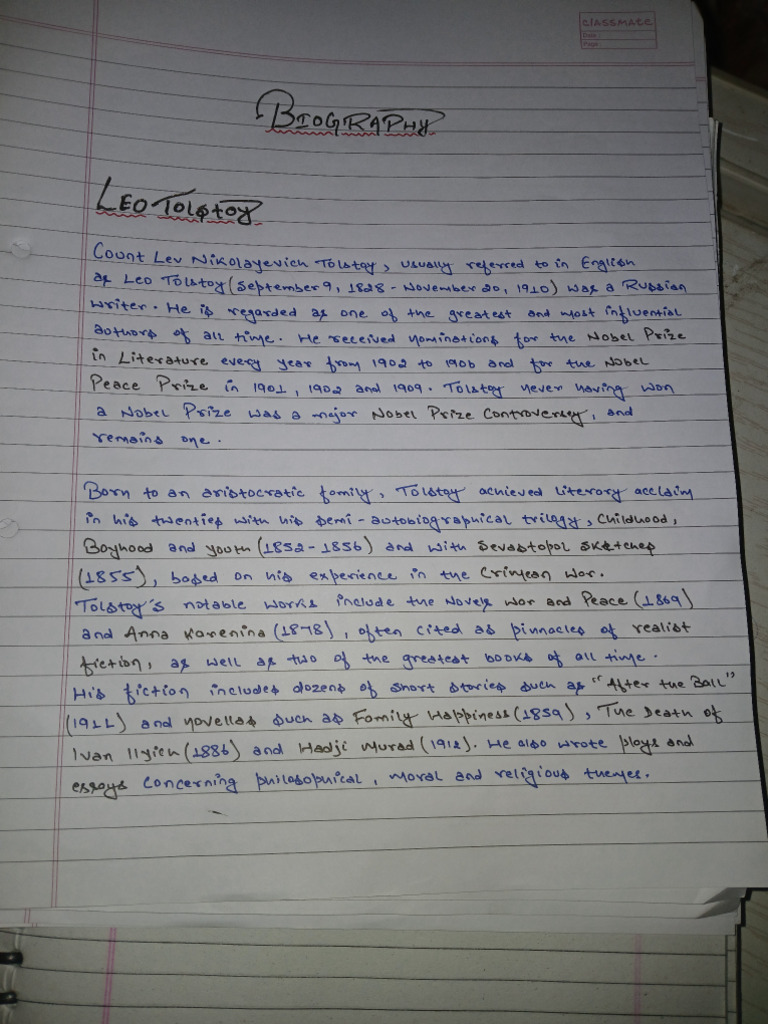 classmate
Date :
Page :
BIOGRAPHY
LEO Tolstoy
Count Lev Nikolayevich Tolstoy, usually referred to in English
as Leo Tolstoy (September 9, 1828 - November 20, 1910) was a Russian
writer. He is regarded as one of the greatest and most influential
authors of all time. He received nominations for the Nobel Prize
in Literature every year from 1902 to 1906 and for the Nobel
Peace Prize in 1901, 1902 and 1909. Tolstoy never having won
a Nobel Prize was a major Nobel Prize Controversy, and
remains one.
Born to an aristocratic family, Tolstoy achieved literary acclaim
in his twenties with his semi-autobiographical trilogy, Childhood,
Boyhood and youth (1852-1856) and with Sevastopol Sketches
(1855), based on his experience in the Crimean War.
Tolstoy's notable works include the Novels War and Peace (1869)
and Anna Karenina (1878), often cited as pinnacles of realist
fiction, as well as two of the greatest books of all time.
His fiction includes dozens of short stories such as "After the Ball"
(1911) and novellas such as Family Happiness (1859), The Death of
Ivan Ilyich (1886) and Hadji Murad (1912). He also wrote plays and
essays concerning philosophical, moral and religious themes.